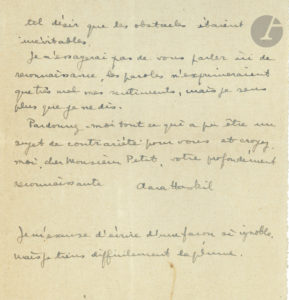 tel désir que les obstacles étaient
inévitables.
Je n'essayerai pas de vous parler ici de
reconnaissance, les paroles n'exprimeraient
que très mal mes sentiments, mais je sens
plus que je ne dis.
Pardonnez-moi tout ce qui a pu être un
sujet de contrariété pour vous et croyez
moi, cher Monsieur Petit, votre profondément
reconnaissante Clara Haskil
Je m'excuse d'écrire d'une façon si ignoble,
mais je tiens difficilement la plume.